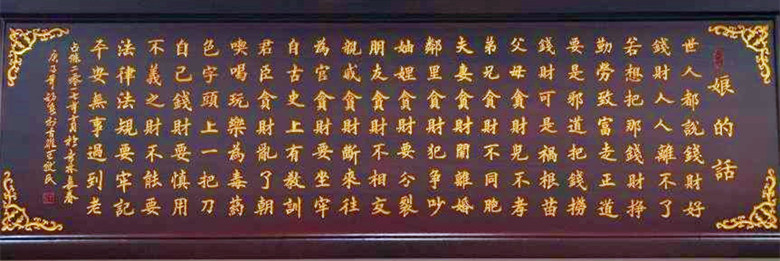 娘的話
世人都說錢財好
錢財人人離不了
若想把那錢財掙
勤勞致富走正道
要是邪道把錢撈
錢財可是禍根苗
父母貪財兒不孝
弟兄貪財不同胞
夫妻貪財鬧離婚
鄰里貪財犯爭吵
妯娌貪財要分裂
朋友貪財不相交
親戚貪財斷來往
為官貪財要坐牢
自古史上有教訓
君臣貪財亂了朝
喫喝玩樂為毒藥
色字頭上一把刀
自己錢財要慎用
不義之財不能要
法律法規要牢記
平安無事過到老